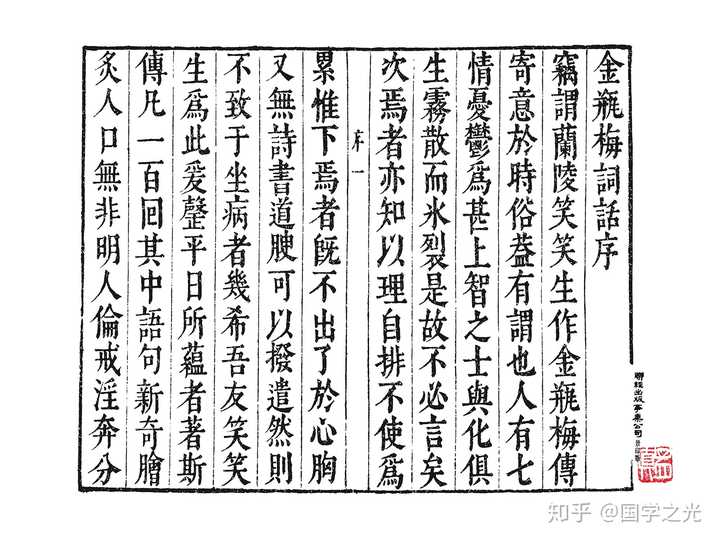 金瓶梅詞話序
竊謂蘭陵笑笑生作金瓶梅傳
寄意於時俗葢有謂也人有七
情憂鬱爲甚上智之士與化俱
生霧散而氷裂是故不必言矣
次焉者亦知以理自排不使爲
序 一
累惟下焉者既不出了於心胸
又無詩書道腴可以撥遣然則
不致于坐病者幾希吾友笑笑
生爲此爰罄平日所蘊者著斯
傳凡一百回其中語句新奇膾
炙人口無非明人倫戒淫奔分
聯經出版事業公司
知乎 @国学之光